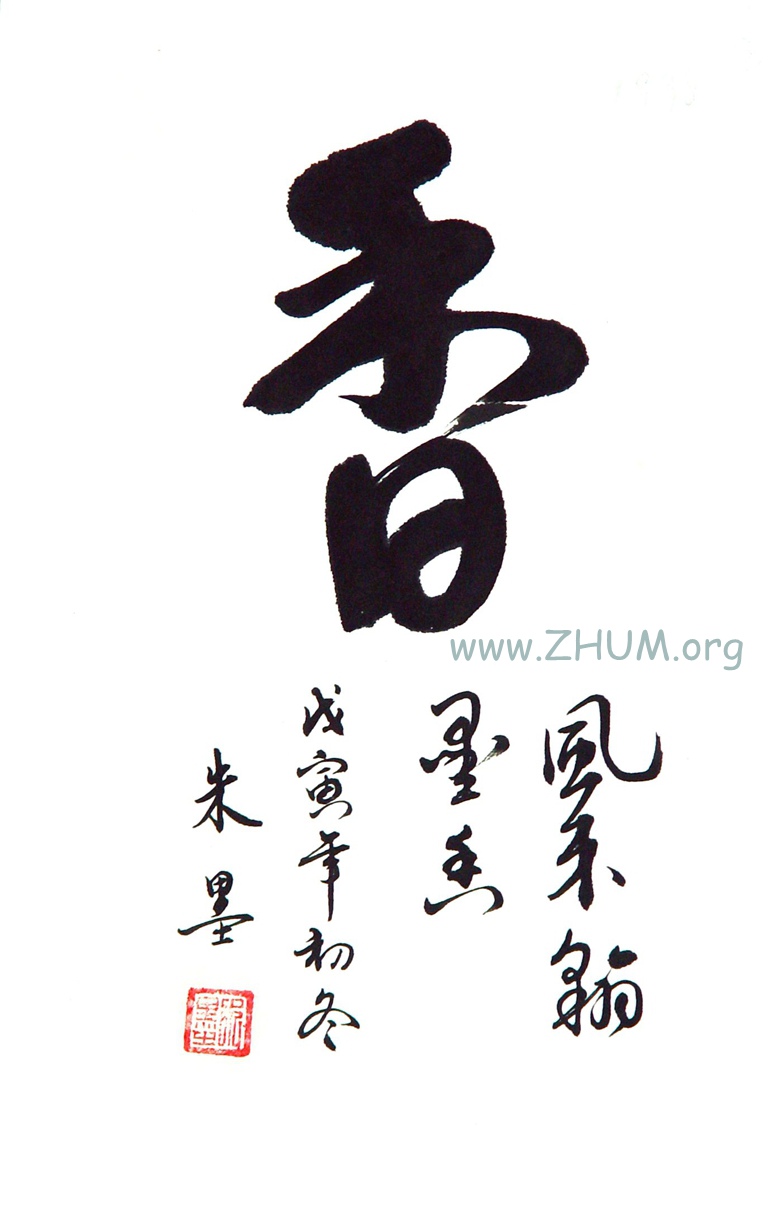 香
www.ZHUM.org
風来翰
墨香
戊寅年初冬
朱墨